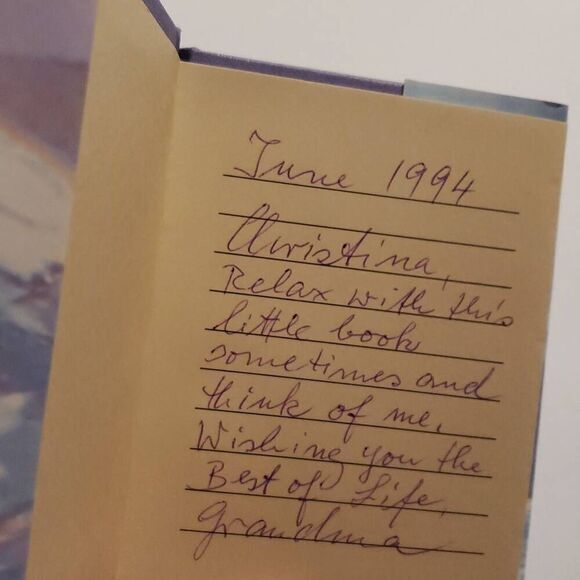 June 1994
Christina,
Relax with this
little book
sometimes and
think of me.
Wishing you the
Best of Life,
Grandma